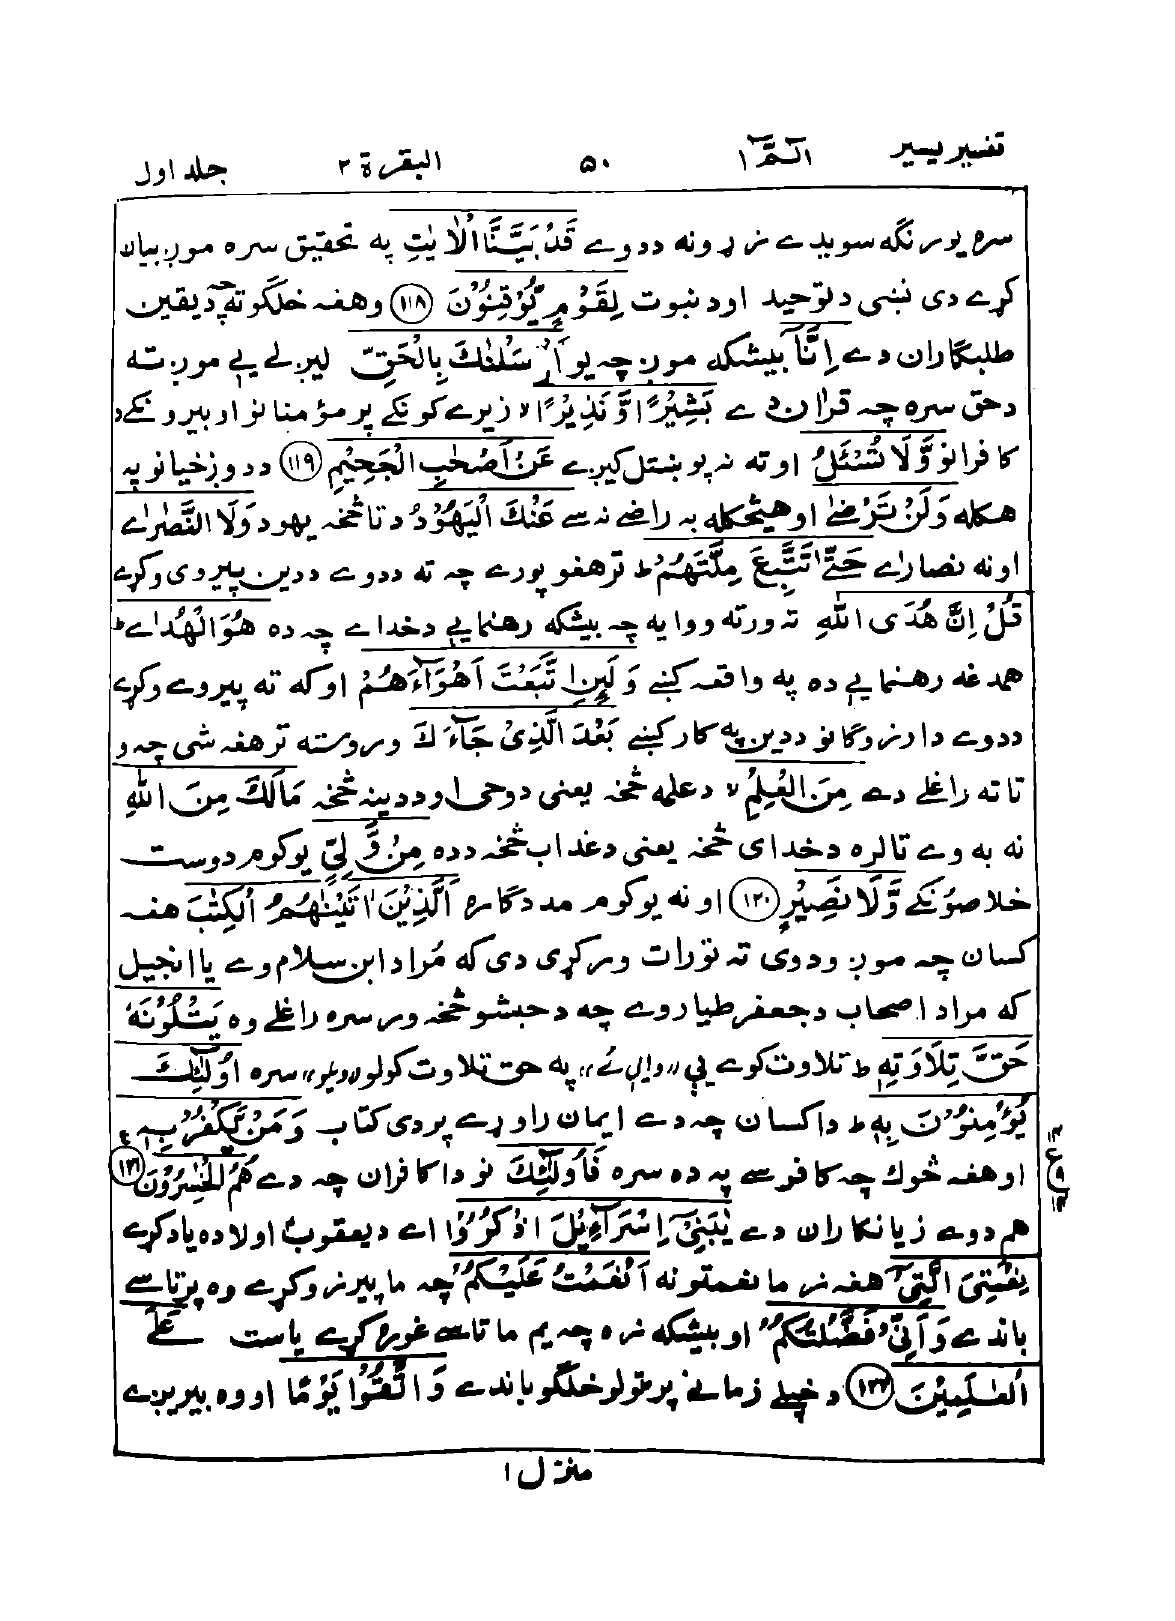 تفسیر یسیر الٓمّٓ ۱ ۵۰ البقرة ۲ جلد اول
سره یو رنګه سویدے زړونه ددوے قَدْ بَيَّنَّا الْاٰيٰتِ په تحقیق سره موږ بیان
کړے دی نښی دتوحید اود نبوت لِقَوْمٍ يُّوْقِنُوْنَ ﴿۱۱۸﴾ وهغه خلکو ته چه دیقین
طلبګاران دے اِنَّآ بیشکه موږ چه یو اَرْسَلْنٰكَ بِالْحَقِّ لیږلے یے موږ ته
دحق سره چه قراٰن دے بَشِيْرًا وَّنَذِيْرًا ۙ زیرے کونکے پر مؤمنانو او بیرونکے د
کافرانو وَّلَا تُسْـَٔلُ او ته نه پوښتل کیږے عَنْ اَصْحٰبِ الْجَحِيْمِ ﴿۱۱۹﴾ ددوزخیانو په
هکله وَلَنْ تَرْضٰى او هیڅکله به راضے نه سے عَنْكَ الْيَهُوْدُ دتا څخه یهود وَلَا النَّصٰرٰى
اونه نصاراے حَتّٰى تَتَّبِعَ مِلَّتَهُمْ ؕ ترهغو پورے چه ته ددوے ددین پیروی وکړے
قُلْ اِنَّ هُدَى اللّٰهِ ته ورته ووایه چه بیشکه رهنمایی دخداے چه ده هُوَ الْهُدٰى ؕ
همدغه رهنمایی ده په واقعه کښے وَلَىِٕنِ اتَّبَعْتَ اَهْوَآءَهُمْ اوکه ته پیروے وکړے
ددوے دارزوګانو ددین په کار کښے بَعْدَ الَّذِىْ جَآءَكَ وروسته ترهغه شی چه و
تا ته راغلے دے مِنَ الْعِلْمِ ۙ دعلمه څخه یعنی دوحی او ددینه څخه مَالَكَ مِنَ اللّٰهِ
نه به وے تا لره دخدای څخه یعنی دعذاب څخه دده مِنْ وَّلِيٍّ یو کوم دوست
خلاصونکے وَّلَا نَصِيْرٍ ﴿۱۲۰﴾ او نه یو کوم مددګاره اَلَّذِيْنَ اٰتَيْنٰهُمُ الْكِتٰبَ هغه
کسان چه موږ ودوی ته تورات ورکړی دی که مُراد ابن سلام وے یا انجیل
که مراد اصحاب دجعفر طیار وے چه دحبشو څخه ورسره راغلے وه يَتْلُوْنَهٗ
حَقَّ تِلَاوَتِهٖ ؕ تلاوت کوے یې په حق تلاوت کولو سره اُولٰٓىِٕكَ
يُؤْمِنُوْنَ بِهٖ ؕ داکسان چه دے ایمان راوړے پردی کتاب وَمَنْ يَّكْفُرْ بِهٖ
اوهغه څوك چه کافر سے په ده سره فَاُولٰٓىِٕكَ نو داکافران چه دے هُمُ الْخٰسِرُوْنَ ﴿۱۲۱﴾
هم دوے زیانکاران دے يٰبَنِىْٓ اِسْرَآءِيْلَ اذْكُرُوْا اے دیعقوب اولاده یاد کړے
نِعْمَتِىَ الَّتِىْٓ هغه زما نعمتونه اَنْعَمْتُ عَلَيْكُمْ چه ما پیرزو کړے وه پرتاسے
باندے وَاَنِّىْ فَضَّلْتُكُمْ او بیشکه زه چه یم ما تاسے غوره کړے یاست عَلَى
الْعٰلَمِيْنَ ﴿۱۲۲﴾ دخپلے زمانے پر ټولو خلګو باندے وَاتَّقُوْا يَوْمًا او وه بیریږے
منزل ۱